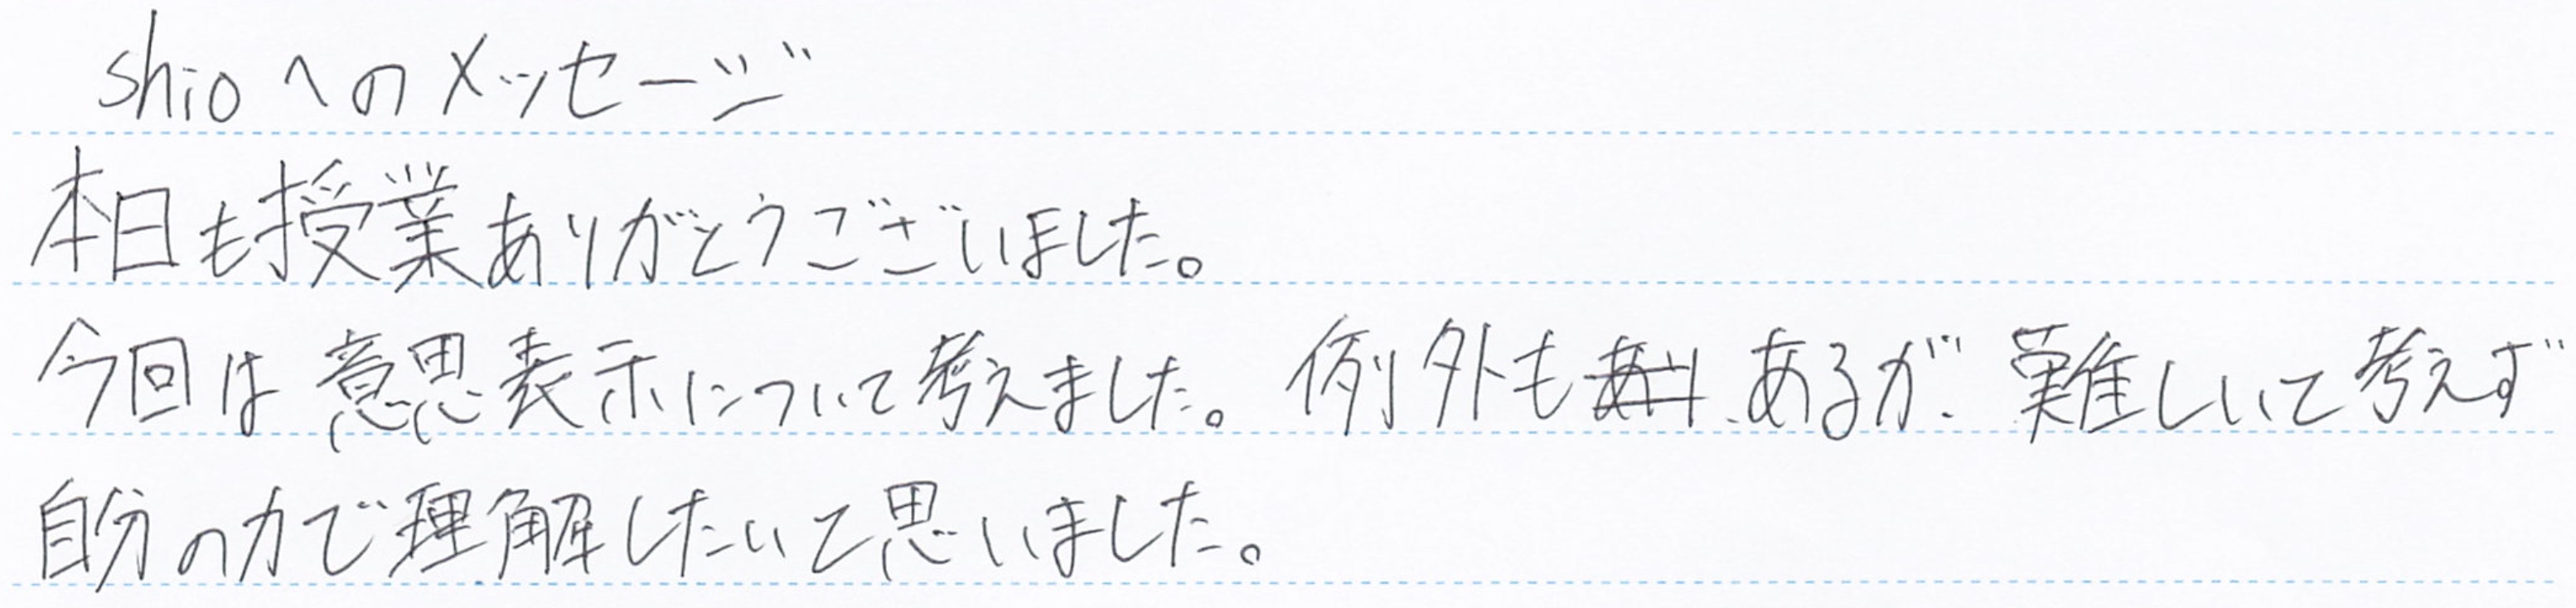 shioへのメッセージ
本日も授業ありがとうございました。
今回は意思表示について考えました。例外もあるが、難しいと考えず
自分の力で理解したいと思いました。